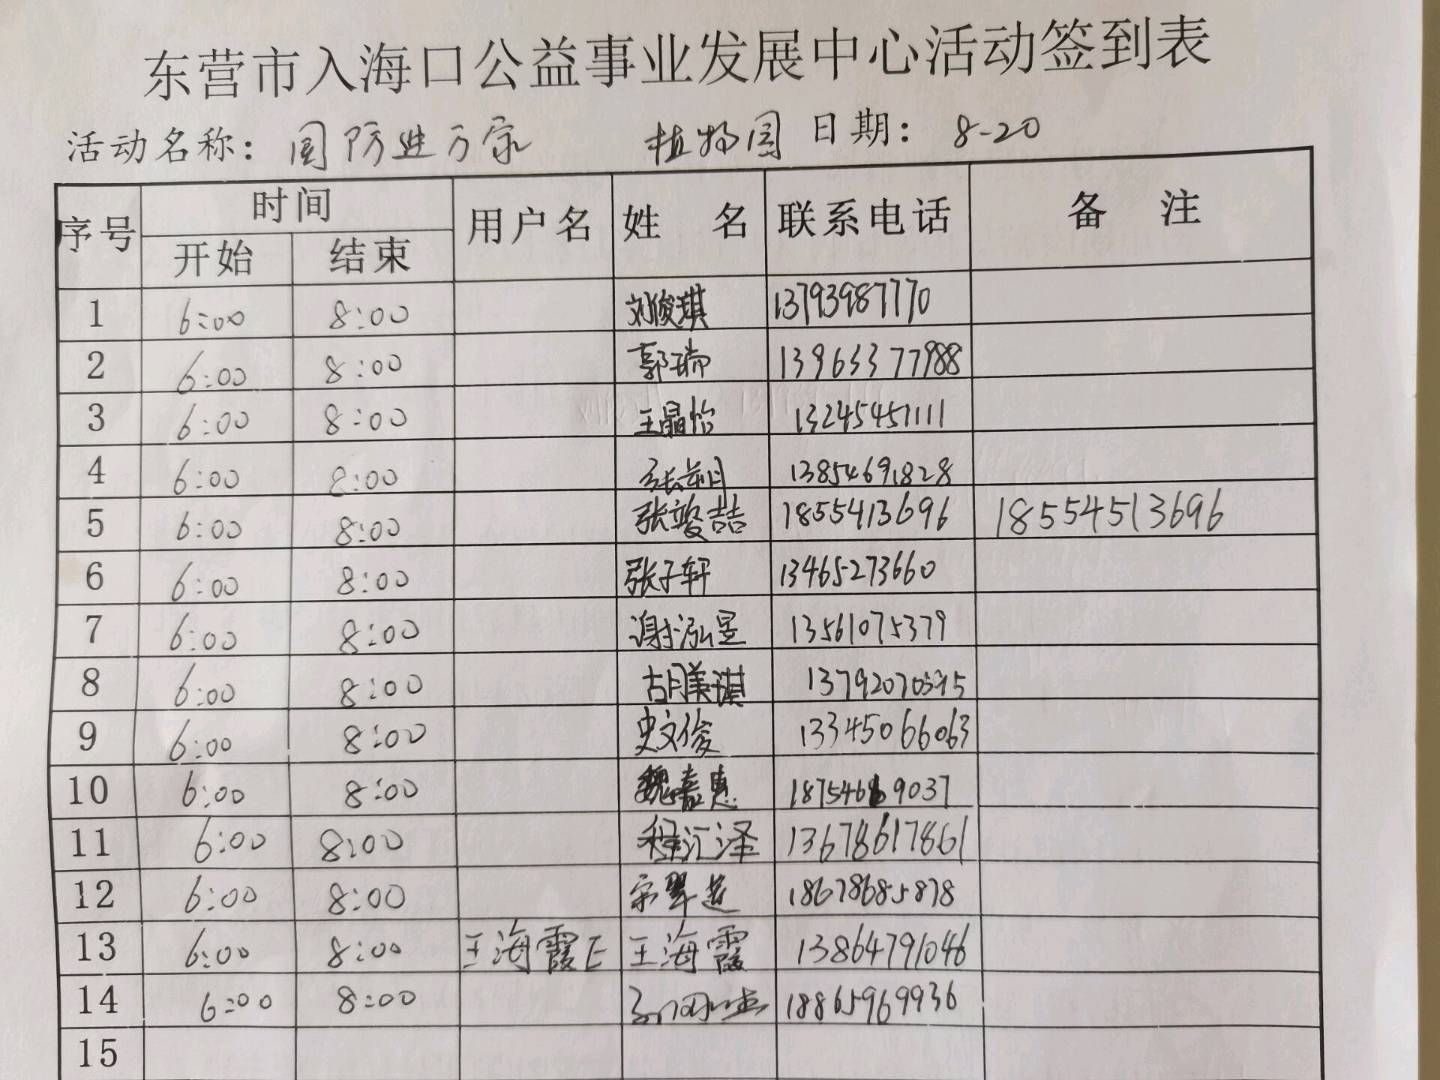 东营市入海口公益事业发展中心活动签到表
活动名称：国防进万家 植物园 日期：8-20
序号 时间 用户名 姓名 联系电话 备注
开始 结束
1 6:00 8:00 刘俊琪 13793987770
2 6:00 8:00 郭瑞 13963377988
3 6:00 8:00 王晶怡 13245451111
4 6:00 8:00 张朔 13854691828
5 6:00 8:00 张竣喆 1855413696 18554513696
6 6:00 8:00 张子轩 13465273660
7 6:00 8:00 谢泓昱 13561075379
8 6:00 8:00 胡美琪
9 6:00 8:00 史文俊 13345066063
10 6:00 8:00 魏嘉惠
11 6:00 8:00 程汇泽 13678617861
12 6:00 8:00 宗翠莲 18678685878
13 6:00 8:00 王海霞E 王海霞 13864791046
14 6:00 8:00 18865969936
15